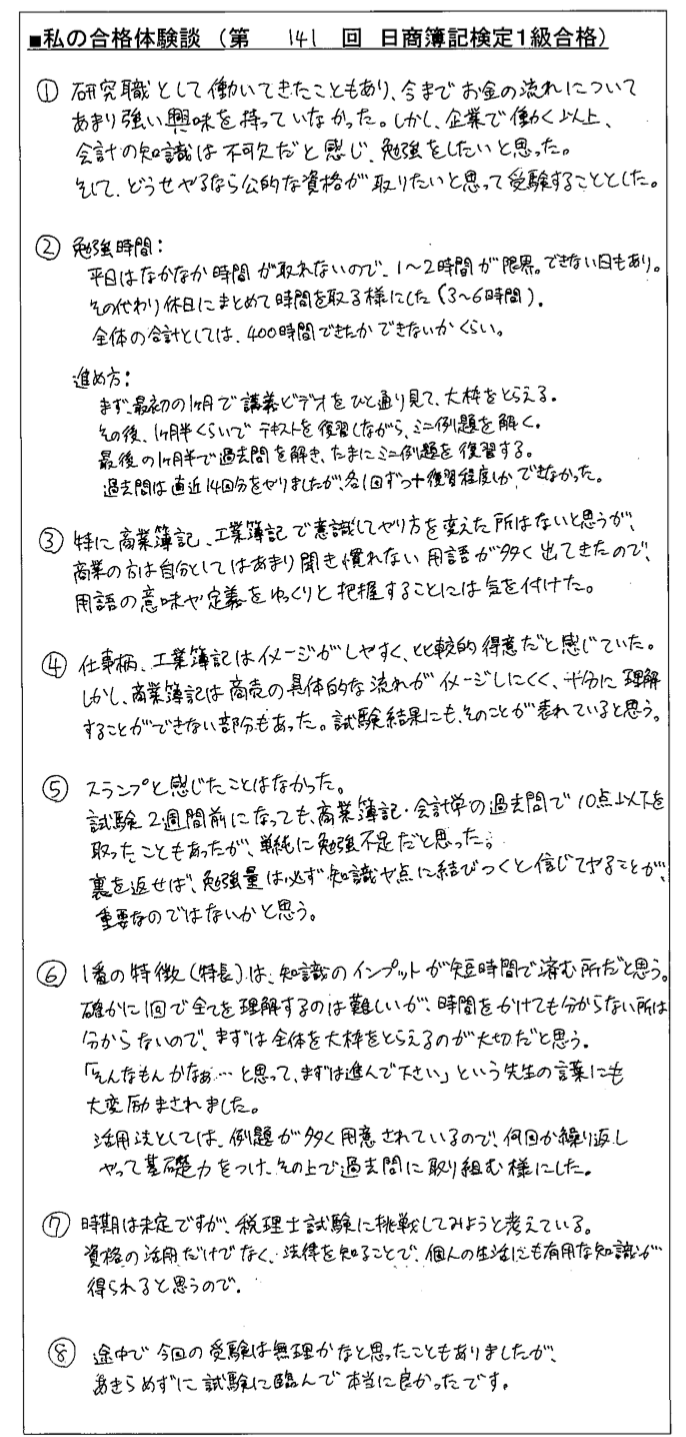 ■私の合格体験談（第 141 回 日商簿記検定1級合格）
① 研究職として働いてきたこともあり、今までお金の流れについて
あまり強い興味を持っていなかった。しかし、企業で働く以上、
会計の知識は不可欠だと感じ、勉強をしたいと思った。
そして、どうせやるなら公的な資格が取りたいと思って受験することとした。
② 勉強時間：
平日はなかなか時間が取れないので、1〜2時間が限界。できない日もあり。
その代わり休日にまとめて時間を取る様にした（3〜6時間）.
全体の合計としては、400時間できたかできないかくらい。
進め方：
まず、最初の1ヶ月で講義ビデオをひと通り見て、大枠をとらえる。
その後、1ヶ月半くらいでテキストを復習しながら、ミニ例題を解く。
最後の1ヶ月半で過去問を解き、たまにミニ例題を復習する。
過去問は直近14回分をやりましたが、各1回ずつ＋復習程度しかできなかった。
③ 特に商業簿記、工業簿記で意識してやり方を変えた所はないと思うが、
商業の方は自分としてはあまり聞き慣れない用語が多く出てきたので、
用語の意味や定義をゆっくりと把握することには気を付けた。
④ 仕事柄、工業簿記はイメージがしやすく、比較的得意だと感じていた。
しかし、商業簿記は商売の具体的な流れがイメージしにくく、十分に理解
することができない部分もあった。試験結果にも、そのことが表れていると思う。
⑤ スランプと感じたことはなかった。
試験2週間前になっても、商業簿記・会計学の過去問で10点以下を
取ったこともあったが、単純に勉強不足だと思った。
裏を返せば、勉強量は必ず知識や点に結びつくと信じてやることが、
重要なのではないかと思う。
⑥ 1番の特徴（特長）は、知識のインプットが短時間で済む所だと思う。
確かに1回で全てを理解するのは難しいが、時間をかけても分からない所は
分からないので、まずは全体を大枠をとらえるのが大切だと思う。
「そんなもんかなぁ…と思って、まずは進んで下さい」という先生の言葉にも
大変励まされました。
活用法としては、例題が多く用意されているので、何回か繰り返し
やって基礎力をつけ、その上で過去問に取り組む様にした。
⑦ 時期は未定ですが、税理士試験に挑戦してみようと考えている。
資格の活用だけでなく、法律を知ることで、個人の生活にも有用な知識が
得られると思うので.
⑧ 途中で今回の受験は無理かなと思ったこともありましたが、
あきらめずに試験に臨んで本当に良かったです。